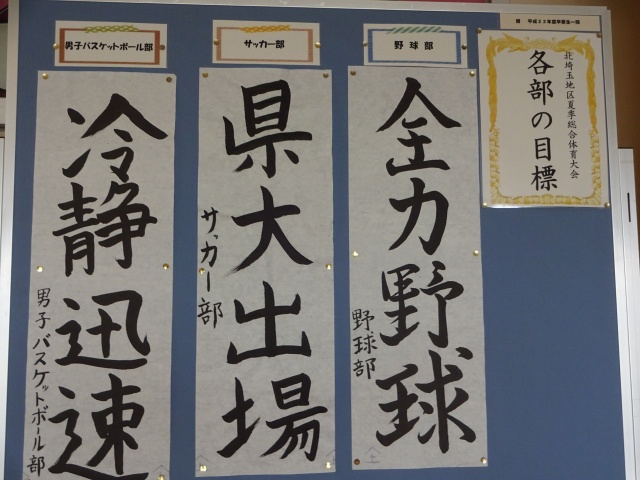 贈 平成23年度卒業生一同
北埼玉地区夏季総合体育大会
各部の目標
野球部
全力野球
野球部
サッカー部
県大出場
サッカー部
男子バスケットボール部
冷静迅速
男子バスケットボール部